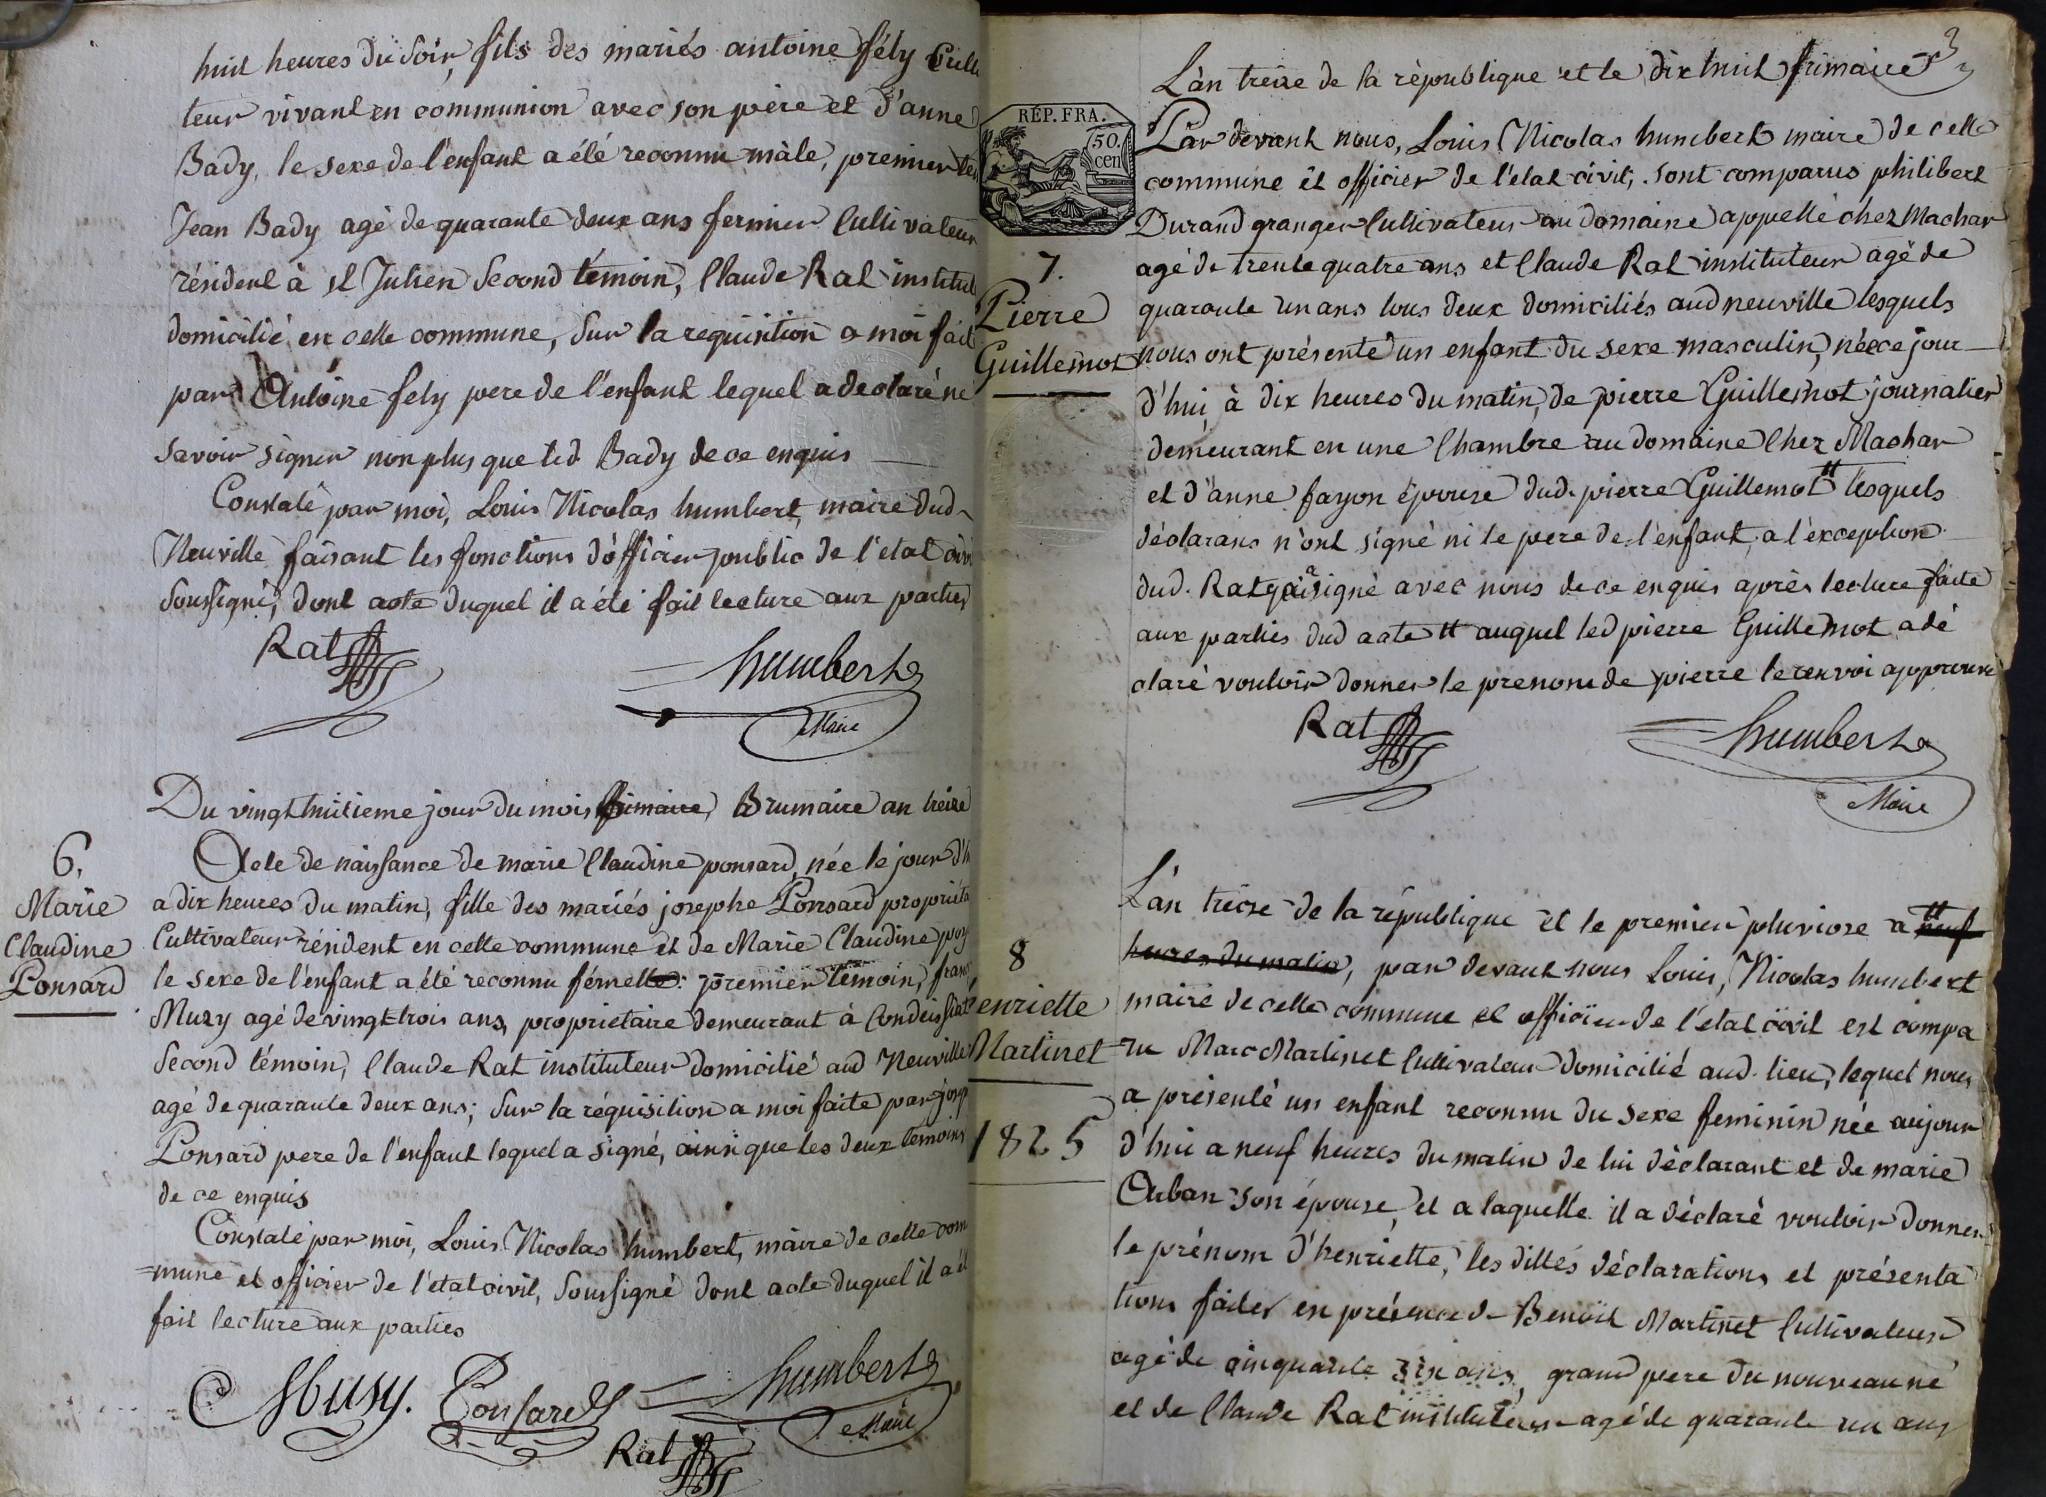 huit heures du soir, fils des mariés antoine fély Culti
teur vivant en communion avec son père et d'anne
Bady, le sexe de l'enfant a été reconnu mâle, premier te
Jean Bady agé de quarante deux ans fermier Cultivateur
résident à st Julien Second témoin, Claude Rat institut
domicilié en cette commune, sur la requisition a moi fait
par Antoine fely pere de l'enfant lequel a declaré ne
savoir signer non plus que led Bady de ce enquis
Constaté par moi, Louis Nicolas humbert, maire dud
Neuville faisant les fonctions d'officier public de l'etat civi
soussigné, dont acte duquel il a été fait lecture aux parties
Rat
humbert
Maire
Du vingt huitieme jour du mois frimaire Brumaire an treize
6.
Marie
Claudine
Ponsard
Acte de naissance de marie Claudine ponsard, née le jour d'h
a dix heures du matin, fille des mariés josephe Ponsard propriéta
Cultivateur résident en cette commune et de Marie Claudine
le sexe de l'enfant a été reconnu fémelle: premier témoin, franç
Muzy agé de vingt trois ans, proprietaire demeurant à Condeissiat
Second témoin, Claude Rat instituteur domicilié aud Neuville
agé de quarante deux ans; Sur la réquisition a moi faite par josep
Ponsard pere de l'enfant lequel a signé, ainsi que les deux témoins
de ce enquis
Constaté par moi, Louis Nicolas humbert, maire de cette com
=mune et officier de l'etat civil, Soussigné dont acte duquel il a ét
fait lecture aux parties
Musy.
Ponsard
humbert
Maire
Rat
3
L'an treize de la république et le dix huit frimaire
RÉP. FRA.
50.
cen
7.
Pierre
Guillemot
Par devant nous, Louis Nicolas humbert maire de cette
commune et officier de l'etat civil, sont comparus philibert
Durand granger Cultivateur au domaine appellé chez Machar
agé de trente quatre ans et Claude Rat instituteur agé de
quarante un ans tous deux domiciliés aud neuville lesquels
nous ont présenté un enfant du sexe masculin, né ce jour
d'hui, à dix heures du matin, de pierre Guillemot journalier
demeurant en une Chambre au domaine Chez Machar
et d'anne fayon épouse dud. pierre Guillemot tt lesquels
déclarans n'ont signé ni le pere de l'enfant, a l'exception
dud. Rat qui a signé avec nous de ce enquis après lecture faite
aux parties dud acte tt auquel led pierre Guillemot a dé
claré vouloir donner le prenom de pierre le renvoi approuvé
Rat
humbert
Maire
8
enriette
Martinet
1825
L'an treize de la république et le premier pluviose a tt neuf
heures du matin, par devant nous Louis, Nicolas humbert
maire de cette commune et officier de l'etat civil est compa
ru Marc Martinet Cultivateur domicilié aud. lieu, lequel nous
a présenté un enfant reconnu du sexe feminin née aujour
d'hui a neuf heures du matin de lui déclarant et de marie
Orban son épouse, et a laquelle il a déclaré vouloir donner
le prénom d'henriette, les dittes déclarations et présenta
tions faites en présence de Benoit Martinet Cultivateur
agé de cinquante six ans, grand pere du nouveau né
et de Claude Rat instituteur agé de quarante un ans